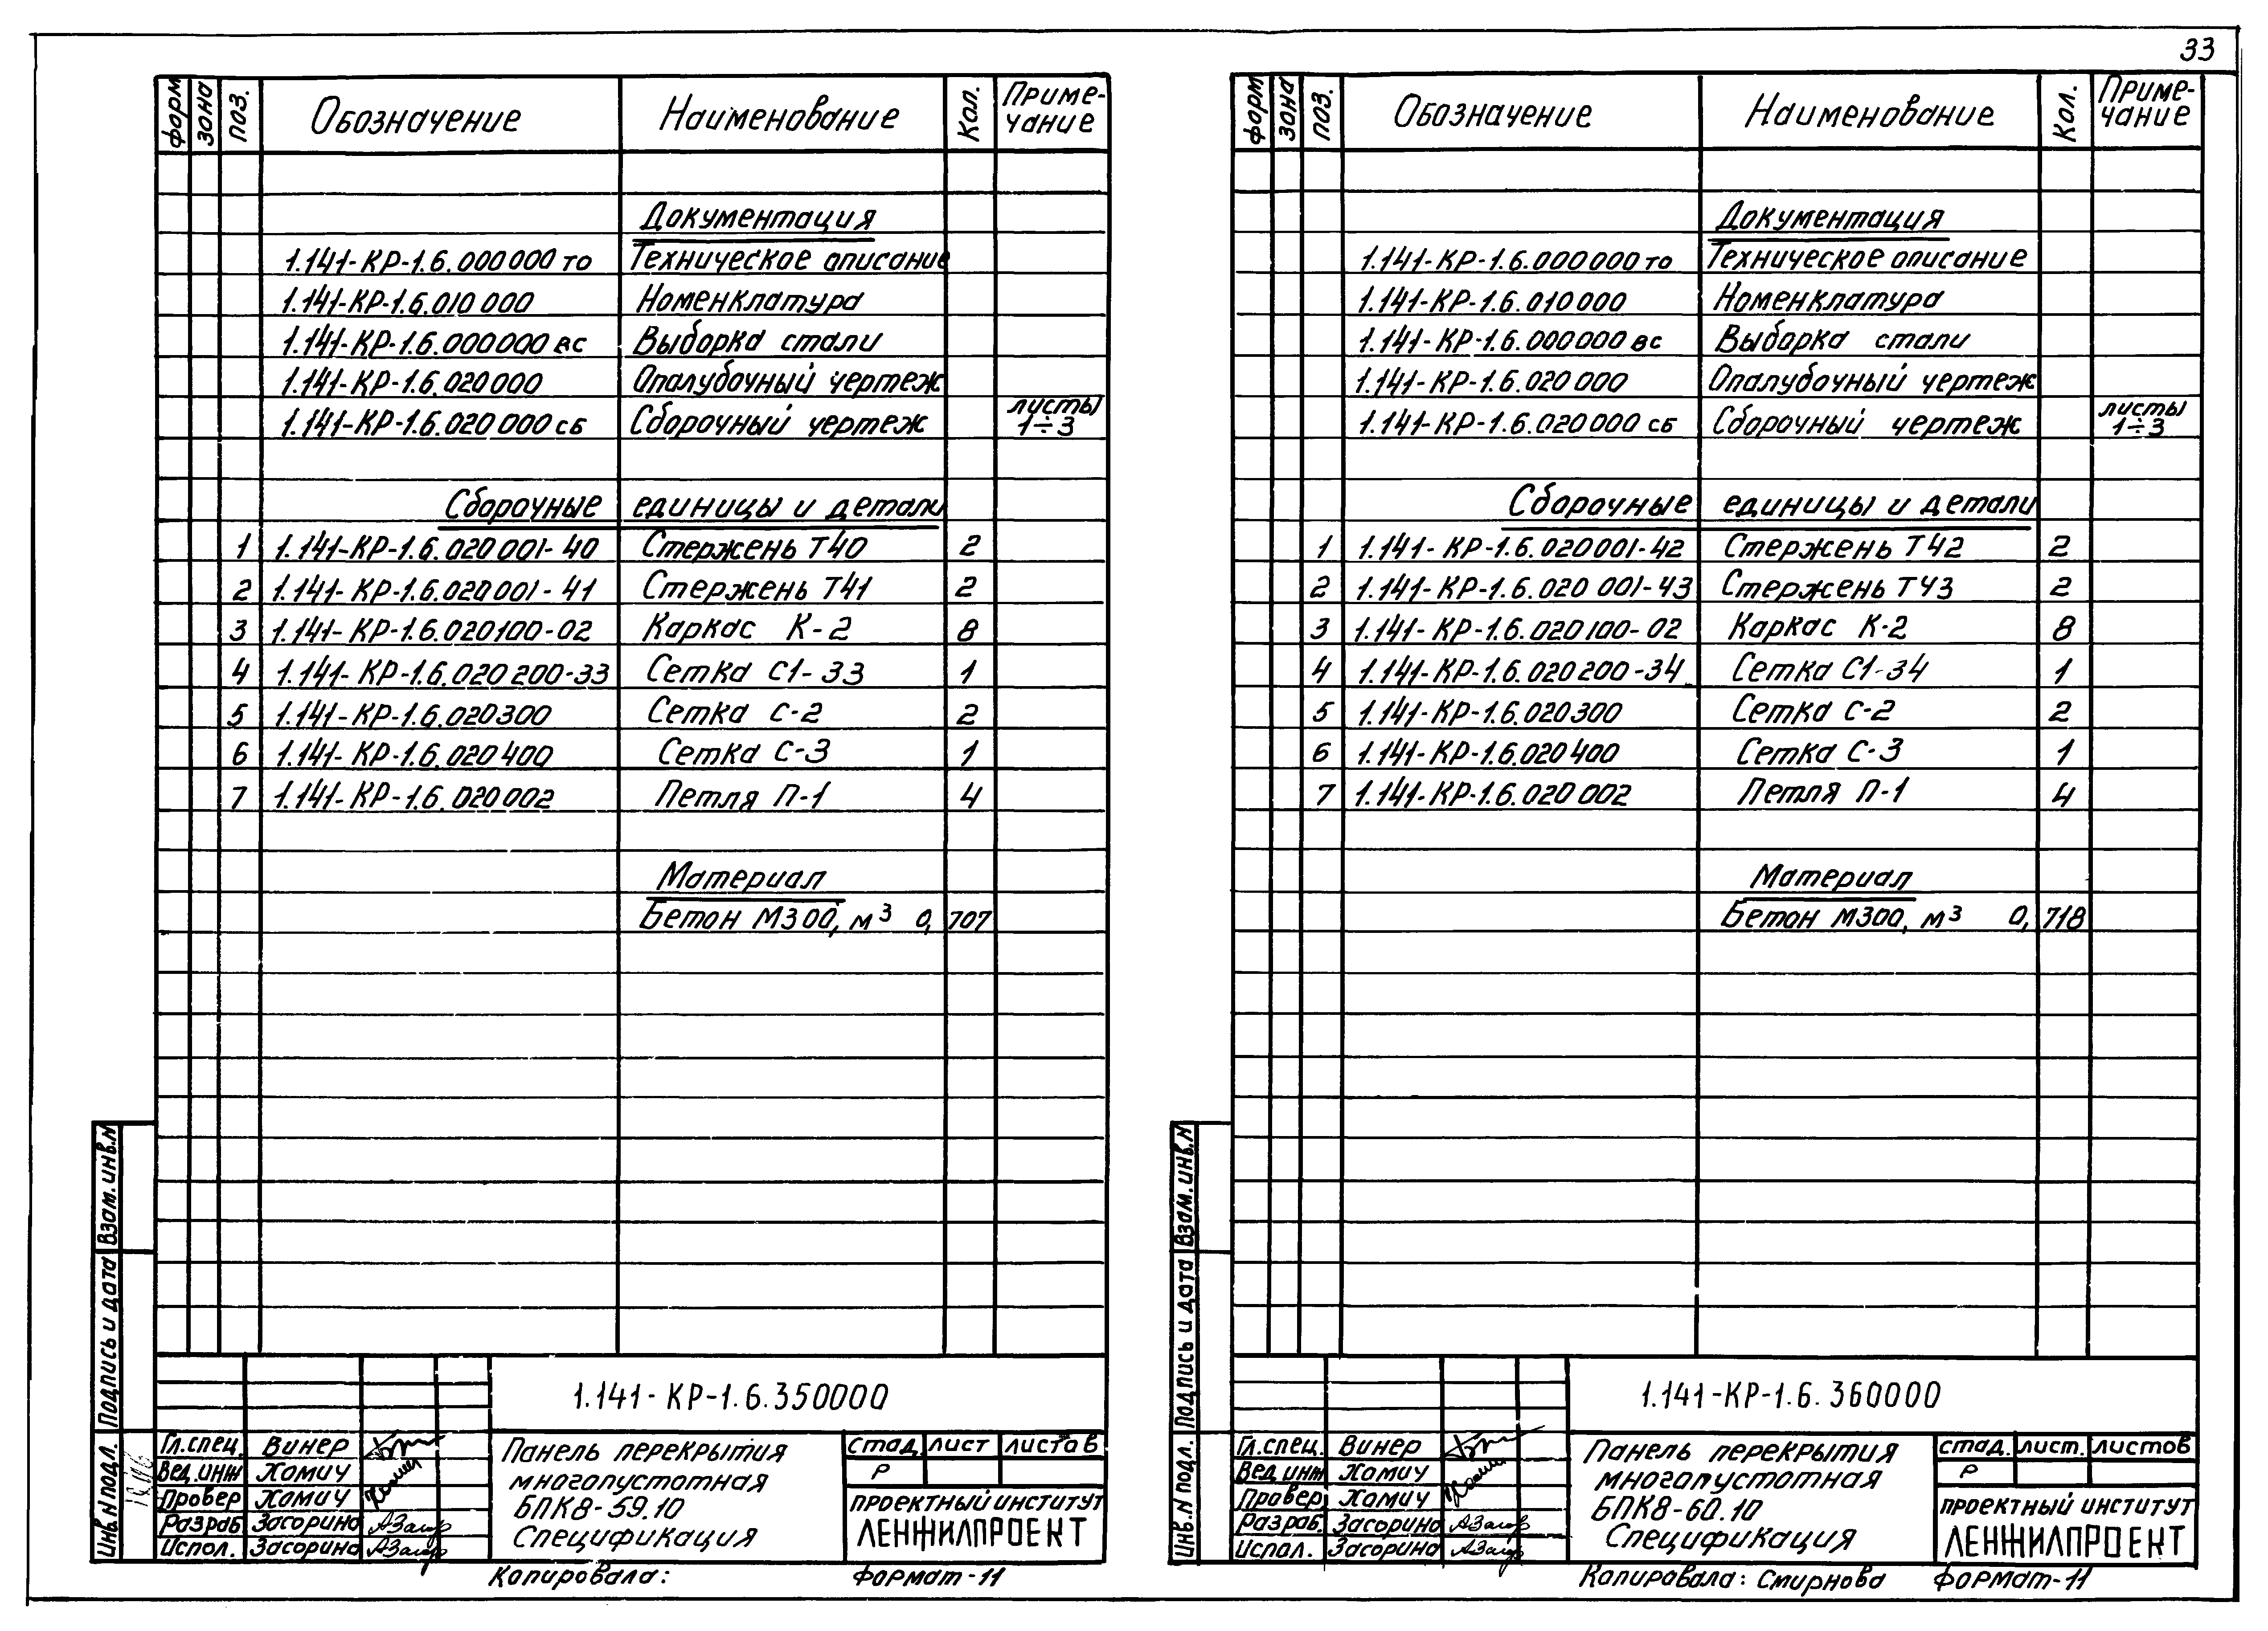 33
форм зона поз. Обозначение Наименование Кол. Приме-
чание
Документация
1.141-КР-1.6.000000 то Техническое описание
1.141-КР-1.6.010 000 Номенклатура
1.141-КР-1.6.000000 вс Выборка стали
1.141-КР-1.6.020000 Опалубочный чертеж
1.141-КР-1.6.020 000 сб Сборочный чертеж листы
1÷3
Сборочные единицы и детали
1 1.141-КР-1.6.020 001-40 Стержень Т40 2
2 1.141-КР-1.6.020 001-41 Стержень Т41 2
3 1.141-КР-1.6.020100-02 Каркас К-2 8
4 1.141-КР-1.6.020 200-33 Сетка С1-33 1
5 1.141-КР-1.6.020300 Сетка С-2 2
6 1.141-КР-1.6.020 400 Сетка С-3 1
7 1.141-КР-1.6.020 002 Петля П-1 4
Материал
Бетон М300, м³ 0,707
Взам. инв.N
Подпись и дата
Инв.N подл.
1.141-КР-1.6.350000
Гл.спец. Винер
Вед.инж Хомич
Провер Хомич
Разраб Засорина АЗасор
Испол. Засорина АЗасор
Панель перекрытия
многопустотная
БПК8-59.10
Спецификация
стад. лист листов
Р
ПРОЕКТНЫЙ ИНСТИТУТ
ЛЕНЖИЛПРОЕКТ
Копировала: Формат-11
форм зона поз. Обозначение Наименование Кол. Приме-
чание
Документация
1.141-КР-1.6.000000 то Техническое описание
1.141-КР-1.6.010000 Номенклатура
1.141-КР-1.6.000000 вс Выборка стали
1.141-КР-1.6.020 000 Опалубочный чертеж
1.141-КР-1.6.020 000 сб Сборочный чертеж листы
1÷3
Сборочные единицы и детали
1 1.141-КР-1.6.020001-42 Стержень Т42 2
2 1.141-КР-1.6.020 001-43 Стержень Т43 2
3 1.141-КР-1.6.020100-02 Каркас К-2 8
4 1.141-КР-1.6.020 200-34 Сетка С1-34 1
5 1.141-КР-1.6.020300 Сетка С-2 2
6 1.141-КР-1.6.020400 Сетка С-3 1
7 1.141-КР-1.6.020 002 Петля П-1 4
Материал
Бетон М300, м³ 0,718
Взам. инв.N
Подпись и дата
Инв.N подл.
1.141-КР-1.6.360000
Гл.спец. Винер
Вед.инж Хомич
Провер Хомич
Разраб. Засорина АЗасор
Испол. Засорина АЗасор
Панель перекрытия
многопустотная
БПК8-60.10
Спецификация
стад. лист. листов
Р
ПРОЕКТНЫЙ ИНСТИТУТ
ЛЕНЖИЛПРОЕКТ
Копировала: Смирнова Формат-11